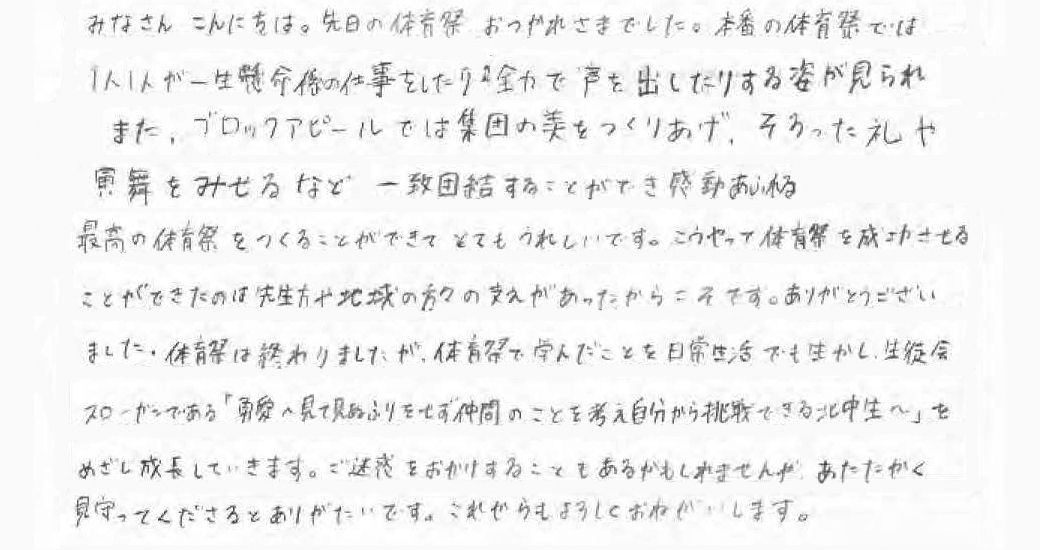 みなさん こんにちは。先日の体育祭 おつかれさまでした。本番の体育祭では
1人1人が一生懸命係の仕事をしたり全力で声を出したりする姿が見られ
また、ブロックアピールでは集団の美をつくりあげ、そろった礼や
演舞をみせるなど 一致団結することができ感動あふれる
最高の体育祭をつくることができてとてもうれしいです。こうやって体育祭を成功させる
ことができたのは先生方や地域の方々の支えがあったからこそです。ありがとうござい
ました。体育祭は終わりましたが、体育祭で学んだことを日常生活でも生かし、生徒会
スローガンである「勇愛へ見て見ぬふりをせず仲間のことを考え自分から挑戦できる北中生へ」を
めざし成長していきます。ご迷惑をおかけすることもあるかもしれませんが、あたたかく
見守ってくださるとありがたいです。これからもよろしくおねがいします。